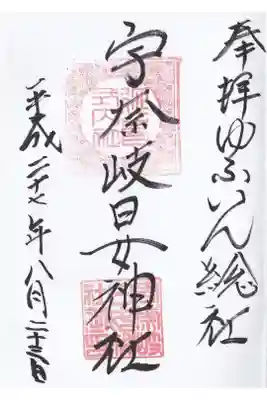 奉拝ゆふいん総社
宇奈岐日女神社
平成二十七年八月二十三日